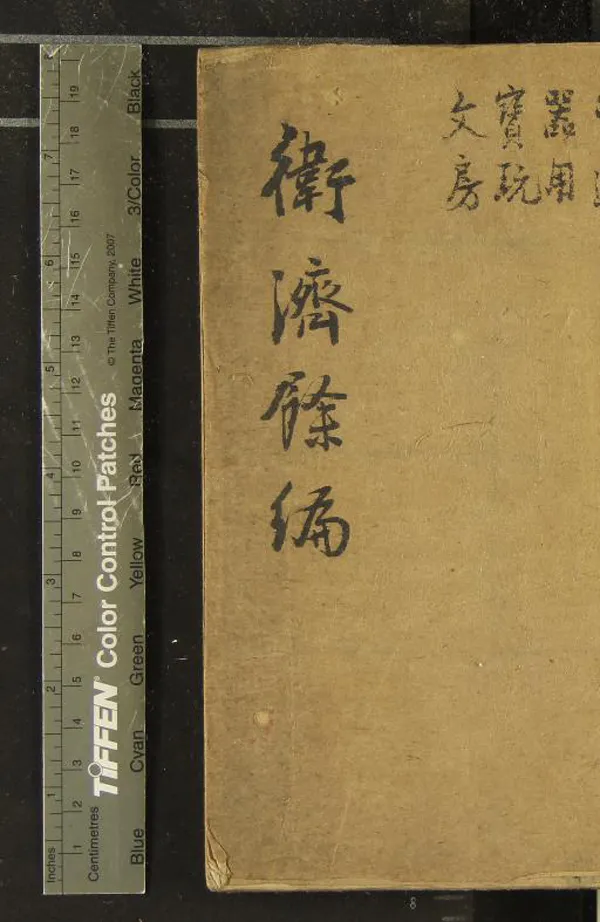 器用
寶玩
文房
衛濟餘編
Inches 1 2 3 4 5 6 7 8
Centimetres 1 2 3 4 5 6 7 8 9 10 11 12 13 14 15 16 17 18 19
TIFFEN® Color Control Patches
© The Tiffen Company, 2007
Blue Cyan Green Yellow Red Magenta White 3/Color Black
8